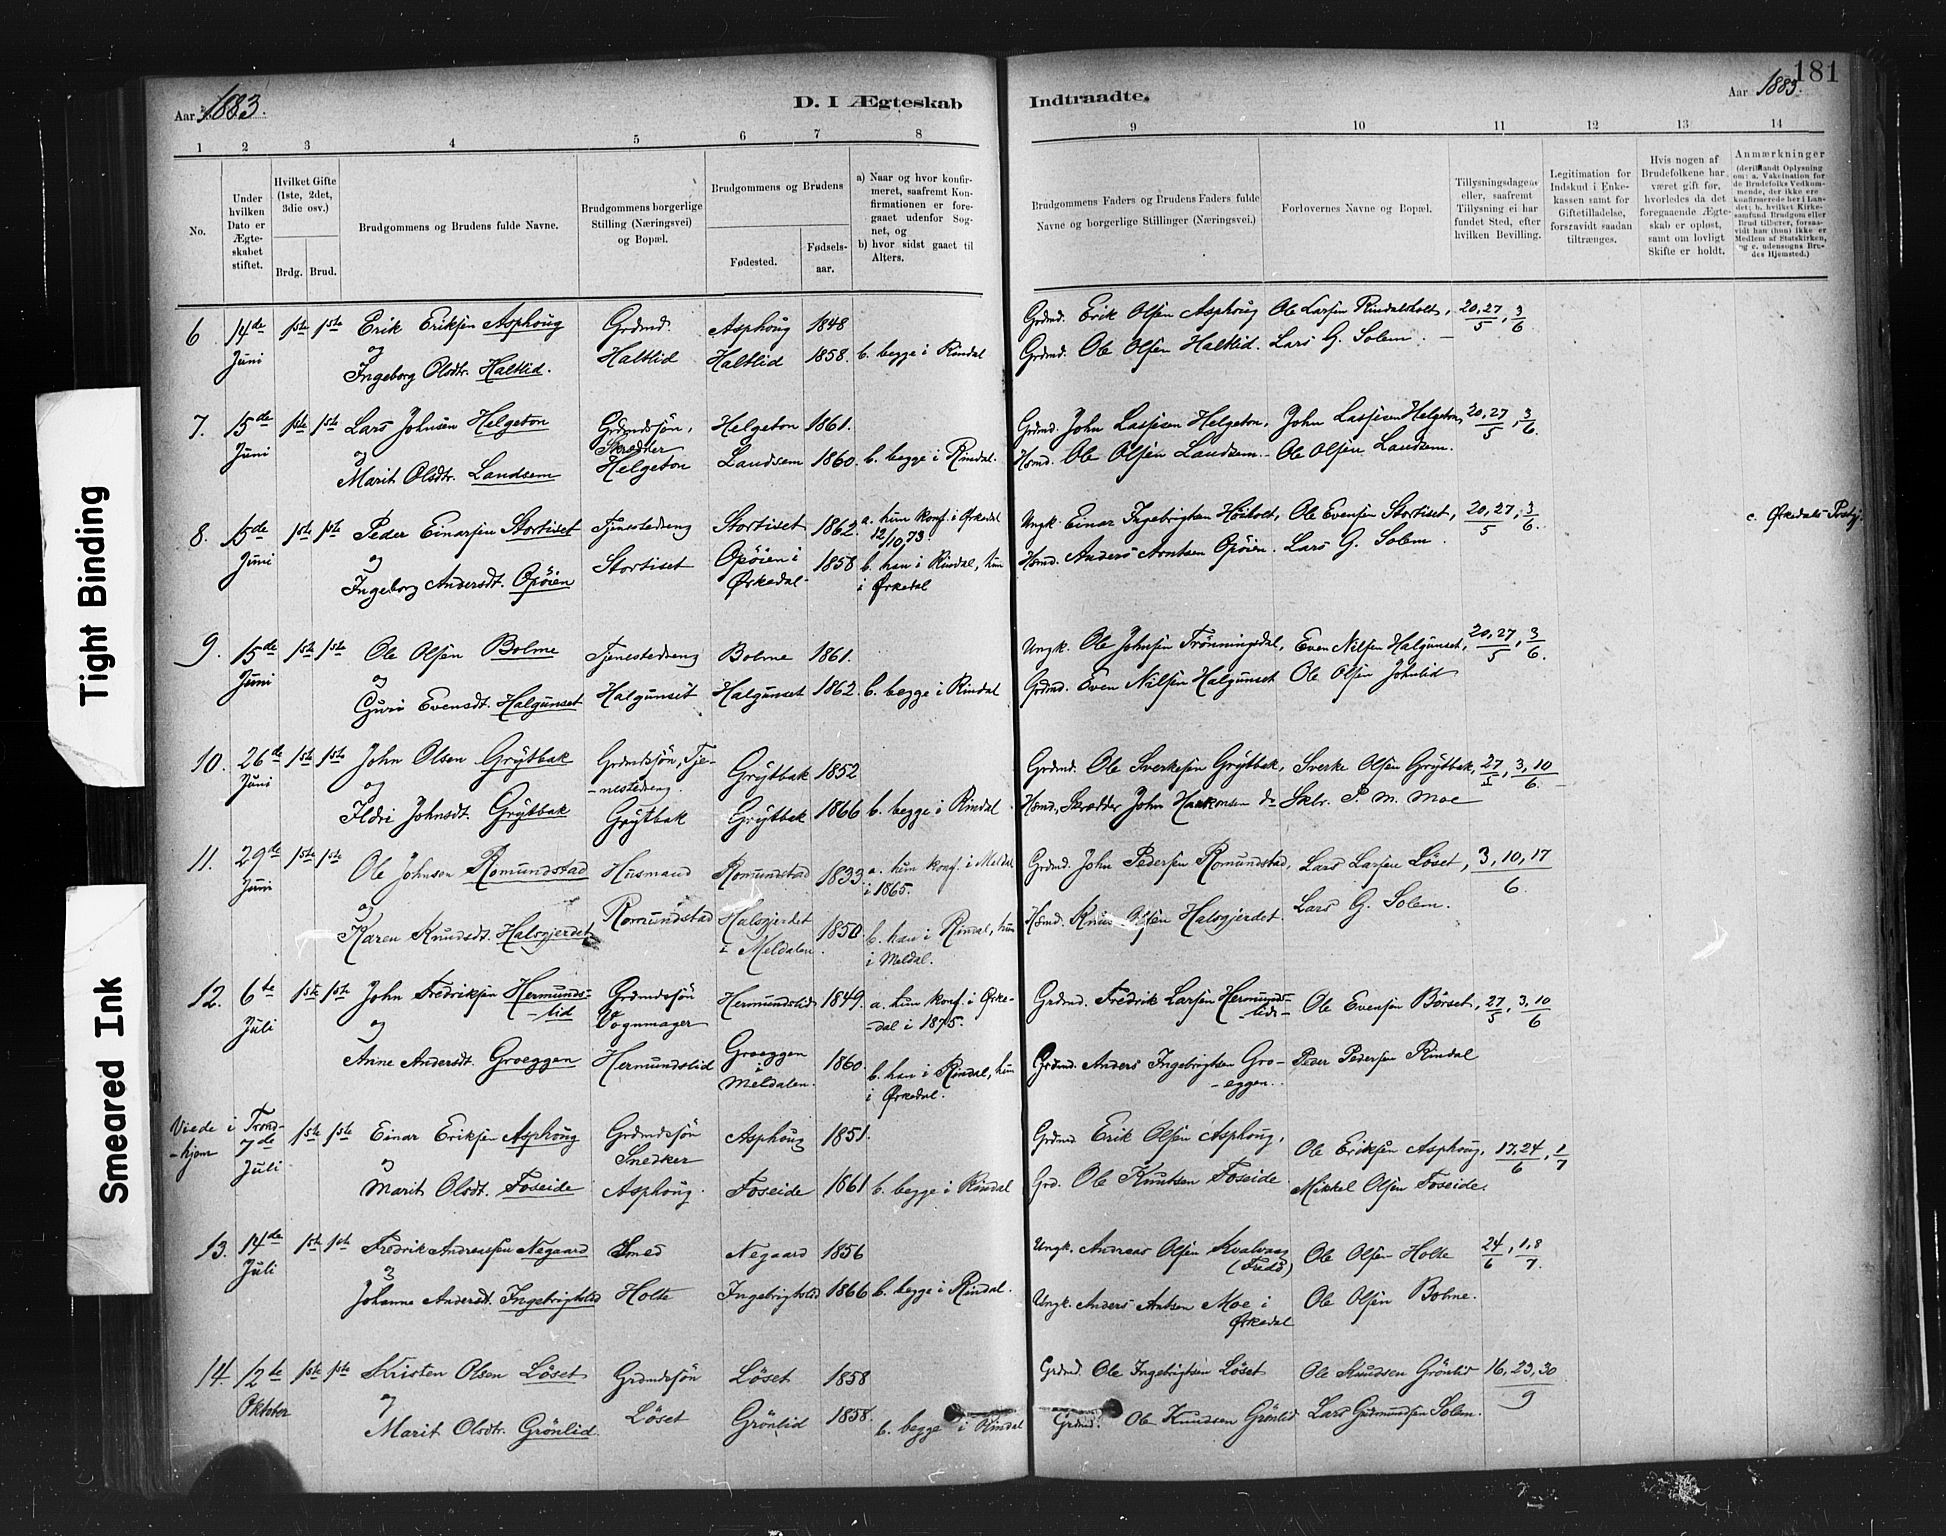 181
Aar 1883.
D. I Ægteskab
Indtraadte.
Aar 1883.
1 2 3 4 5 6 7 8 9 10 11 12 13 14
No.
Under hvilken Dato er Ægteskabet stiftet.
Hvilket Gifte (1ste, 2det, 3die osv.)
Brdg. Brud.
Brudgommens og Brudens fulde Navne.
Brudgommens borgerlige Stilling (Næringsvei) og Bopæl.
Brudgommens og Brudens
Fødested.
Fødsels-aar.
a) Naar og hvor konfirmeret, saafremt Konfirmationen er foregaaet udenfor Sognet, og
b) hvor sidst gaaet til Alters.
Brudgommens Faders og Brudens Faders fulde Navne og borgerlige Stillinger (Næringsvei.)
Forlovernes Navne og Bopæl.
Tillysningsdagene eller, saafremt Tillysning ei har fundet Sted, efter hvilken Bevilling.
Legitimation for Indskud i Enkekassen samt for Giftetilladelse, forsravidt saadan tiltrænges.
Hvis nogen af Brudefolkene har været gift før, hvorledes da det foregaaende Ægteskab er opløst, samt om lovligt Skifte er holdt.
Anmærkninger (deriblandt Oplysning om: a. Vakcination for de Brudefolks Vedkommende, der ikke ere konfirmerede her i Landet; b. hvilket Kirkesamfund Brudgom eller Brud tilhører, forsaavidt han (hun) ikke er Medlem af Statskirken, og c. udensogns Brudes Hjemsted.)
6 14de Juni 1ste 1ste Erik Eriksen Asphoug Grdmd. Asphoug 1848 Grdmd. Erik Olsen Asphoug Ole Larsen Rindalsholt, 20, 27/5, 3/6
og Ingeborg Olsdtr. Haltlid. Haltlid Haltlid 1858. b. begge i Rindal Grdmd. Ole Olsen Haltlid. Lars G. Solem.
7. 15de Juni 1ste 1ste Lars Johnsen Helgeton Grdmdsjøn, Skrædder Helgeton 1861. Grdmd. John Lassesen Helgeton, John Lassesen Helgeton, 20, 27/5, 3/6.
og Marit Olsdtr. Landsem Helgeton Landsem 1860. b. begge i Rindal. Hsmd. Ole Olsen Landsem. Ole Olsen Landsem.
8. 15de Juni 1ste 1ste Peder Einarsen Stortiset Tjenestedreng Stortiset 1862. a. hun konf. i Ørkedal 12/10 73. Ungk. Einar Ingebrigtsen Høiholt, Ole Evensen Stortiset, 20, 27/5, 3/6. c. Ørkedals Prstgj.
og Ingeborg Andersdt. Opøien Stortiset Opøien i Ørkedal 1858 b. han i Rindal, hun i Ørkedal Hsmd. Anders Arntsen Opøien. Lars G. Solem.
9. 15de Juni 1ste 1ste Ole Olsen Bolme Tjenestedreng Bolme 1861. Ungk. Ole Johnsen Trønningsdal, Even Nilsen Halgunset, 20, 27/5, 3/6.
og Guri Evensdt. Halgunset Halgunset Halgunset 1862. b. begge i Rindal Grdmd. Even Nilsen Halgunset Ole Olsen Johnlid
10. 26de Juni 1ste 1ste John Olsen Grytbak Grdmdsjøn, Tjenestedreng. Grytbak 1852 Grdmd. Ole Sverkesen Grytbak, Sverke Olsen Grytbak, 27/5, 3, 10/6.
og Ildri Johnsdt. Grytbak Grytbak Grytbak 1866 b. begge i Rindal Hsmd., Skrædder John Haakonsen do Sklr. P. M. Moe
11. 29de Juni 1ste 1ste Ole Johnsen Romundstad Husmand Romundstad 1833 a. hun konf. i Meldal i 1865. Grdmd. John Pedersen Romundstad, Lars Larsen Løset, 3, 10, 17/6.
og Karen Knudsdt. Halsgjerdet Romundstad Halsgjerdet i Meldalen 1850. b. han i Rindal, hun i Meldal. Hsmd. Knud Olsen Halsgjerdet. Lars G. Solem.
12. 6te Juli 1ste 1ste John Fredriksen Hermundslid Grdmdsjøn Vognmager Hermundslid 1849. a. hun konf. i Ørkedal i 1875. Grdmd. Fredrik Larsen Hermundslid Ole Evensen Børset, 27/5, 3, 10/6
og Anne Andersdt. Groeggen Hermundslid Groeggen i Meldalen. 1860. b. han i Rindal, hun i Ørkedal. Grdmd. Anders Ingebrigtsen Groeggen. Peder Pedersen Rindal
Viede i Trondhjem 7de Juli 1ste 1ste Einar Eriksen Asphoug Grdmdsjøn Snedker Asphoug 1851. Grdmd. Erik Olsen Asphoug, Ole Eriksen Asphoug, 17, 24/6, 1/7
og Marit Olsdt. Foseide Asphoug. Foseide 1861 b. begge i Rindal Grd. Ole Knutsen Foseide Mikkel Olsen Foseide.
13. 14de Juli 1ste 1ste Fredrik Andreassen Negaard Smed Negaard 1856 Ungk. Andreas Olsen Kvalvaag (Fredø) Ole Olsen Holte 24/6, 1, 8/7.
og Johanne Andersdt. Ingebrigtslid Holte Ingebrigtslid 1866 b. begge i Rindal. Ungk. Anders Antsen Moe i Ørkedal Ole Olsen Bolme.
14. 12te Oktober 1ste 1ste Kristen Olsen Løset Grdmdsjøn Løset 1858 Grdmd. Ole Ingebrigtsen Løset Ole Knudsen Grønlid 16, 23, 30/9
og Marit Olsdtr. Grønlid Løset Grønlid 1858. b. begge i Rindal Grdmd. Ole Knudsen Grønlid Lars Gudmundsen Solem.
Tight Binding
Smeared Ink